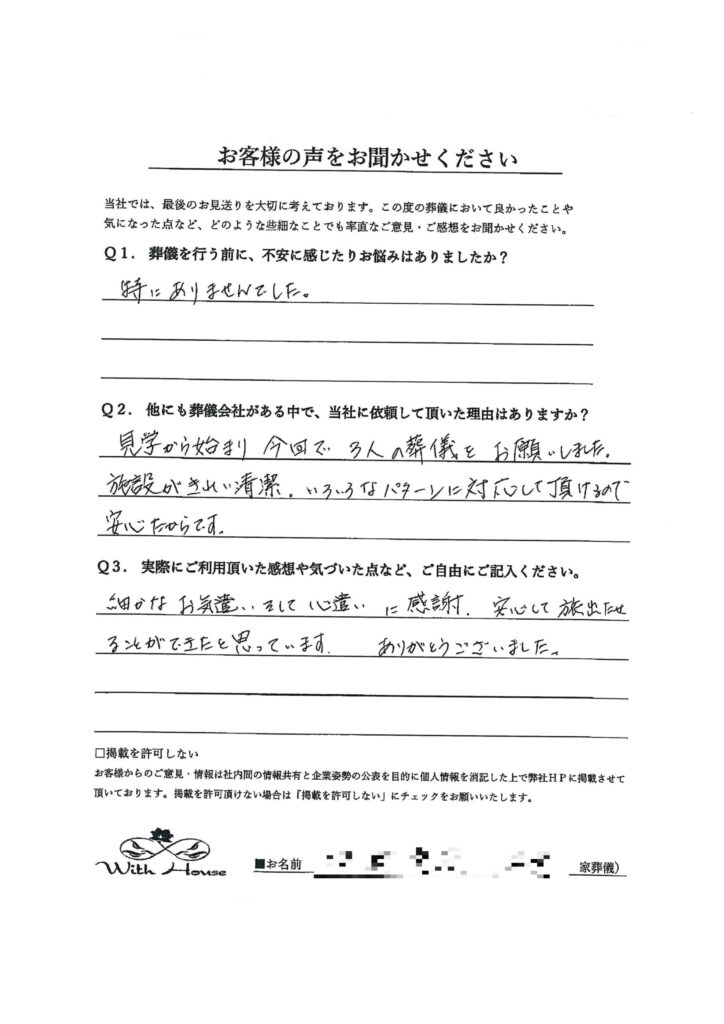 お客様の声をお聞かせください
当社では、最後のお見送りを大切に考えております。この度の葬儀において良かったことや
気になった点など、どのような些細なことでも率直なご意見・ご感想をお聞かせください。
Q1．葬儀を行う前に、不安に感じたりお悩みはありましたか？
特にありませんでした。
Q2．他にも葬儀会社がある中で、当社に依頼して頂いた理由はありますか？
見学から始まり 今回で 3人の葬儀を お願いしました。
施設がきれい清潔。いろいろなパターンに対応して頂けるので
安心だからです。
Q3．実際にご利用頂いた感想や気づいた点など、ご自由にご記入ください。
細かな お気遣い そして 心遣い に 感謝。安心して 旅出たせ
ることができたと思っています。 ありがとうございました。
□掲載を許可しない
お客様からのご意見・情報は社内間の情報共有と企業姿勢の公表を目的に個人情報を消記した上で弊社HPに掲載させて
頂いております。掲載を許可頂けない場合は「掲載を許可しない」にチェックをお願いいたします。
With House
■お名前 家葬儀）